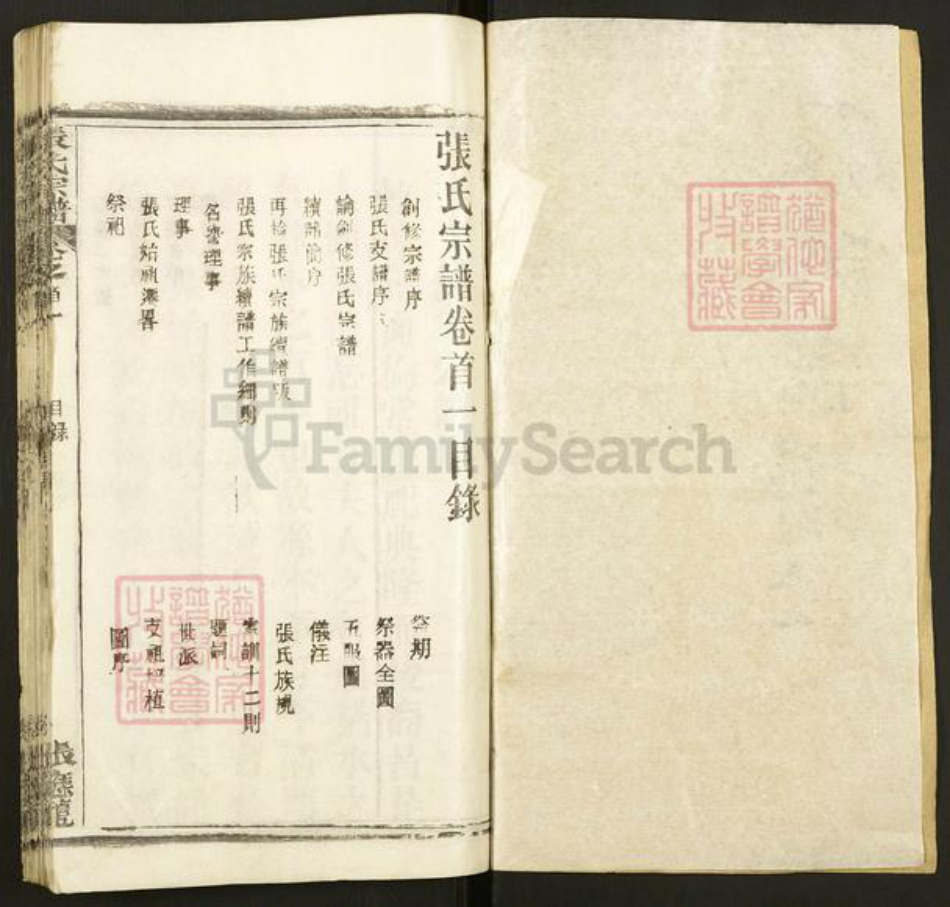 張氏宗譜卷首一目錄
創修宗譜序
張氏支譜序
論創修張氏宗譜
續譜簡序
再修張氏宗族續譜
張氏宗族續譜工作細則
名譽理事
理事
張氏始祖畧
祭祀
祭期
祭器全圖
五服圖
儀注
張氏族規
家訓十二則
題詞
世派
支祖
圖序
張氏宗譜
卷之首一
目錄
FamilySearch
譜學會
收藏